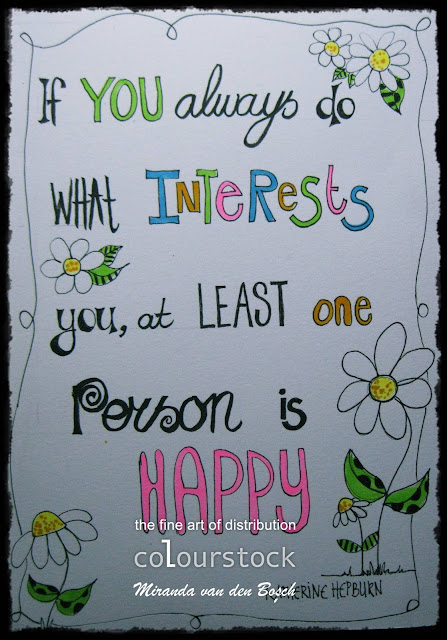 If YOU always do
WHAt INTeRests
you, at LEAST one
Person is
HAPPY
the fine art of distribution
colourstock
Miranda van den Bosch
HERINE HEPBURN